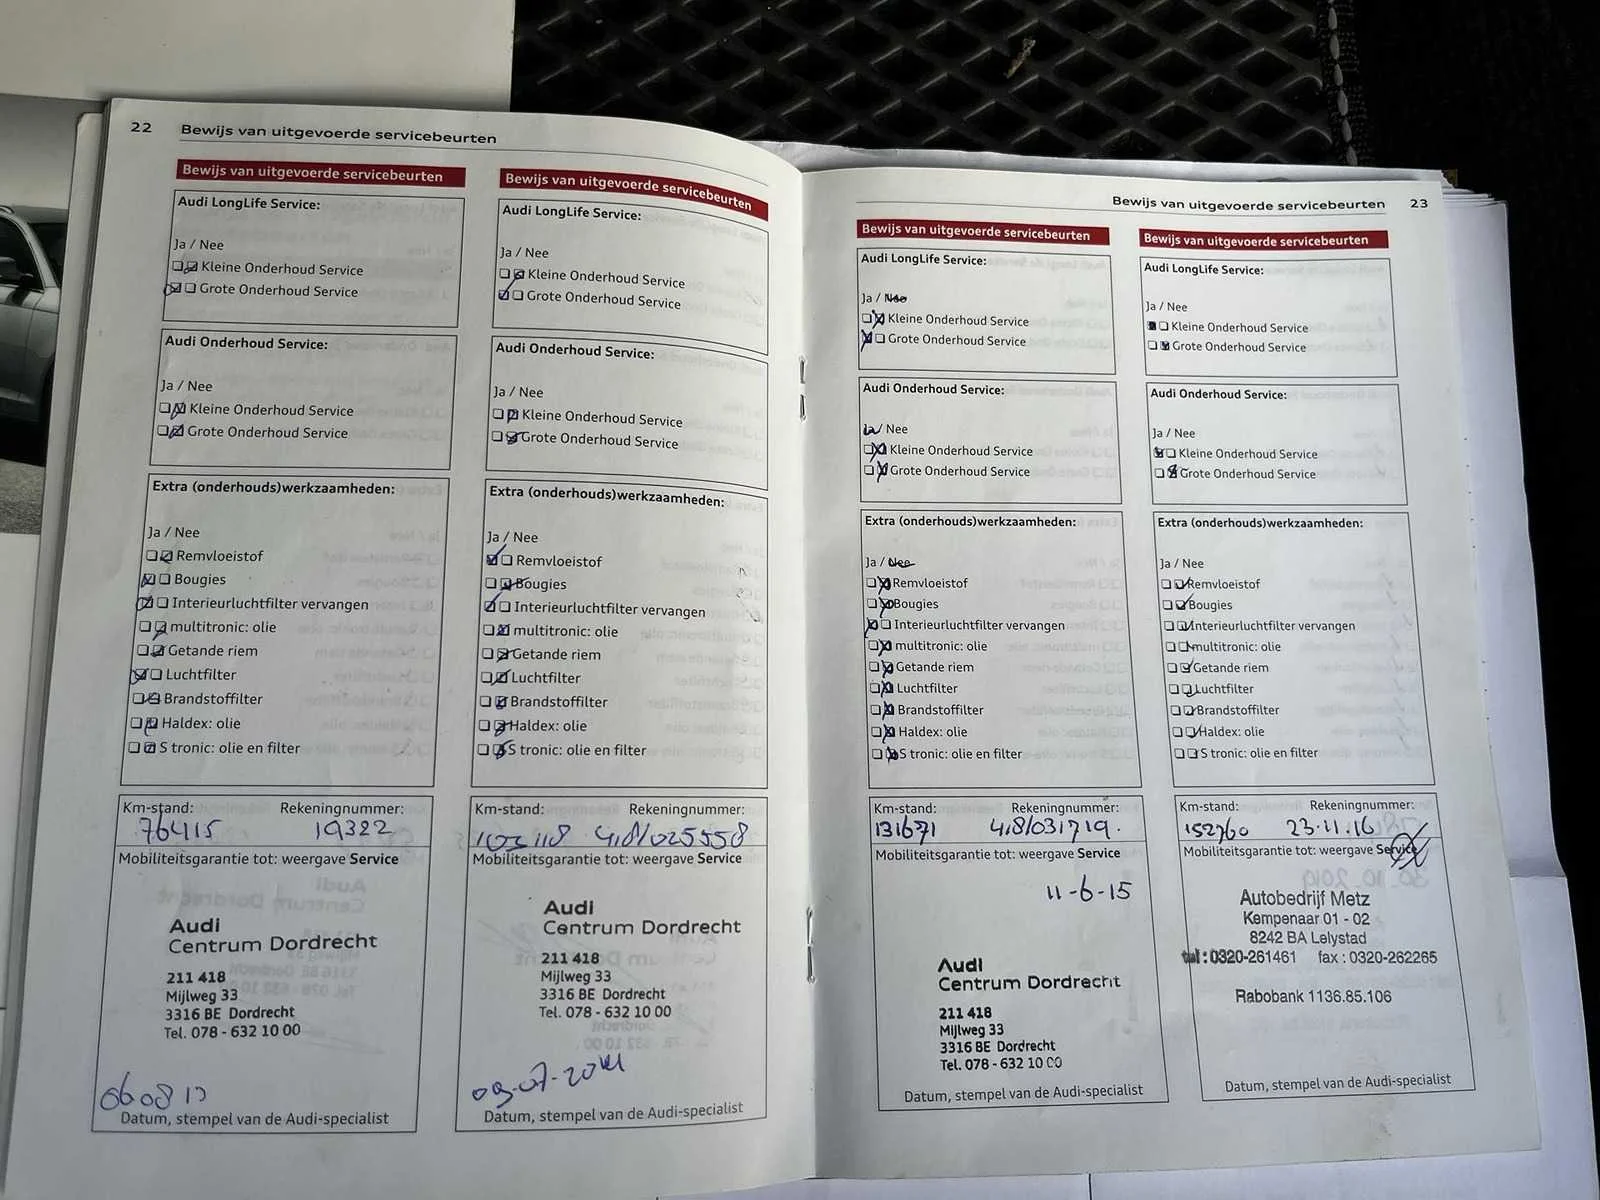 22 Bewijs van uitgevoerde servicebeurten
Bewijs van uitgevoerde servicebeurten
Audi LongLife Service:
Ja / Nee
Kleine Onderhoud Service
Grote Onderhoud Service
Audi Onderhoud Service:
Ja / Nee
Kleine Onderhoud Service
Grote Onderhoud Service
Extra (onderhouds)werkzaamheden:
Ja / Nee
Remvloeistof
Bougies
Interieurluchtfilter vervangen
multitronic: olie
Getande riem
Luchtfilter
Brandstoffilter
Haldex: olie
S tronic: olie en filter
Km-stand: Rekeningnummer:
76415 19322
Mobiliteitsgarantie tot: weergave Service
Audi
Centrum Dordrecht
211 418
Mijlweg 33
3316 BE Dordrecht
Tel. 078 - 632 10 00
Datum, stempel van de Audi-specialist
Bewijs van uitgevoerde servicebeurten
Audi LongLife Service:
Ja / Nee
Kleine Onderhoud Service
Grote Onderhoud Service
Audi Onderhoud Service:
Ja / Nee
Kleine Onderhoud Service
Grote Onderhoud Service
Extra (onderhouds)werkzaamheden:
Ja / Nee
Remvloeistof
Bougies
Interieurluchtfilter vervangen
multitronic: olie
Getande riem
Luchtfilter
Brandstoffilter
Haldex: olie
S tronic: olie en filter
Km-stand: Rekeningnummer:
103118 418/025558
Mobiliteitsgarantie tot: weergave Service
Audi
Centrum Dordrecht
211 418
Mijlweg 33
3316 BE Dordrecht
Tel. 078 - 632 10 00
09-07-2014
Datum, stempel van de Audi-specialist
Bewijs van uitgevoerde servicebeurten 23
Bewijs van uitgevoerde servicebeurten
Audi LongLife Service:
Ja / Nee
Kleine Onderhoud Service
Grote Onderhoud Service
Audi Onderhoud Service:
Ja / Nee
Kleine Onderhoud Service
Grote Onderhoud Service
Extra (onderhouds)werkzaamheden:
Ja / Nee
Remvloeistof
Bougies
Interieurluchtfilter vervangen
multitronic: olie
Getande riem
Luchtfilter
Brandstoffilter
Haldex: olie
S tronic: olie en filter
Km-stand: Rekeningnummer:
131671 418/031719.
Mobiliteitsgarantie tot: weergave Service
11-6-15
Audi
Centrum Dordrecht
211 418
Mijlweg 33
3316 BE Dordrecht
Tel. 078 - 632 10 00
Datum, stempel van de Audi-specialist
Bewijs van uitgevoerde servicebeurten
Audi LongLife Service:
Ja / Nee
Kleine Onderhoud Service
Grote Onderhoud Service
Audi Onderhoud Service:
Ja / Nee
Kleine Onderhoud Service
Grote Onderhoud Service
Extra (onderhouds)werkzaamheden:
Ja / Nee
Remvloeistof
Bougies
Interieurluchtfilter vervangen
multitronic: olie
Getande riem
Luchtfilter
Brandstoffilter
Haldex: olie
S tronic: olie en filter
Km-stand: Rekeningnummer:
152760 23.11.16
Mobiliteitsgarantie tot: weergave Service
Autobedrijf Metz
Kempenaar 01 - 02
8242 BA Lelystad
tel : 0320-261461 fax : 0320-262265
Rabobank 1136.85.106
Datum, stempel van de Audi-specialist